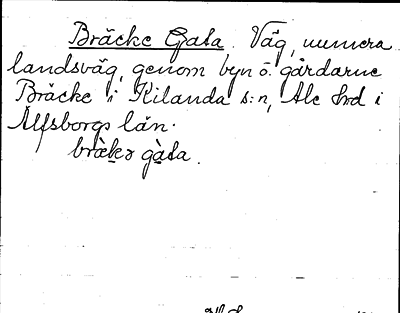 Bräcke Gata. Väg, numera
landsväg, genom byn o. gårdarne
Bräcke i Kilanda s:n, Ale hrd i
Älfsborgs län.
bräkə gàta.